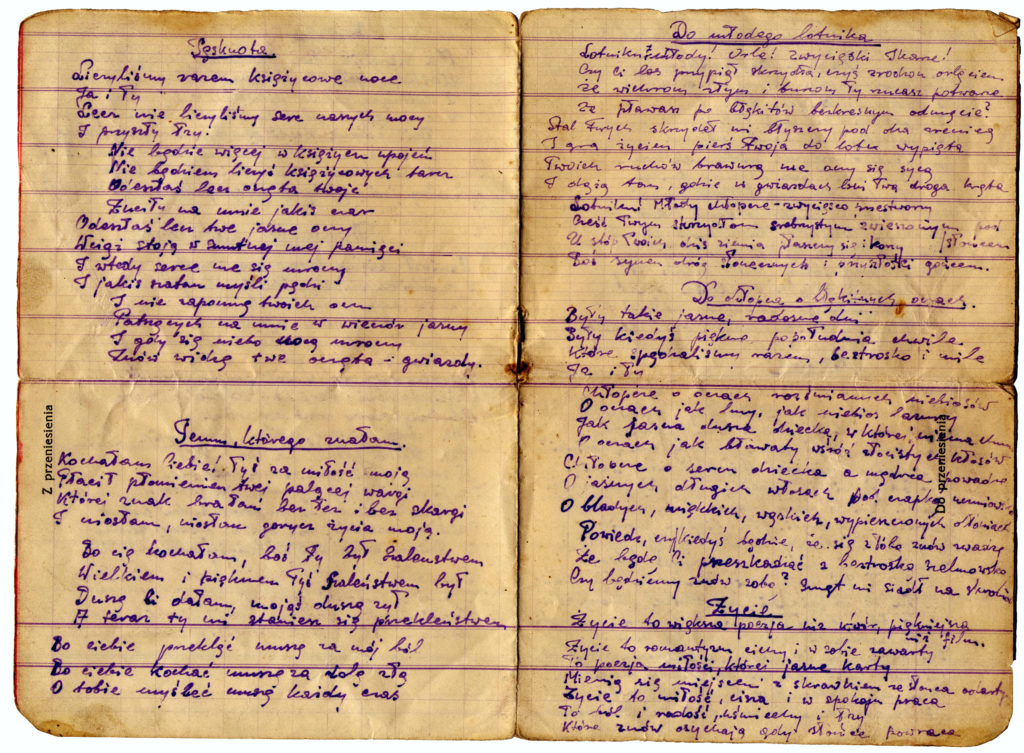 Tęsknota
Liczyliśmy razem księżycowe noce
Ja i Ty
Lecz nie liczyliśmy serc naszych mocy
I przyszły łzy.
Nie będzie więcej w księżycu upojeń
Nie będziem liczyć księżycowych tarcz
Odeszłaś lecz oczęta twoje
Zwarły na mnie jakiś czar
Odeszłaś lecz twe jasne oczy
Wciąż stoją w smutnej mej pamięci
I wtedy serce me się mroczy
I jakiś szatan myśli pędzi
I nie zapomnę twoich ócz
Patrzących na mnie w wieczór jasny
I gdy się niebo nocą mroczy
Znów widzę twe oczęta - gwiazdy.
Z przeniesienia
Temu, którego znałam.
Kochałam Ciebie! Tyś za miłość moją
Płacił płomieniem twej palącej wargi
Której znak brałam bez łez i bez skargi
I niosłam, niosłam gorycz życia moją.
Bo cię kochałam, boś Ty był szaleństwem
Wielkiem i pięknem Tyś szaleństwem był
Duszę Ci dałam, mojąś duszą żył
A teraz ty mi staniesz się przekleństwem
Bo ciebie przekląć muszę za mój ból
Bo ciebie kochać muszę za dolę złą
O tobie myśleć muszę każdy czas
Do młodego lotnika
Lotniku młody! Orle! Zwycięski Ikarze!
Czy Ci los przypiął skrzydła, czyś zrodzon orlęciem
Że wichrom złym i burzom Ty rzucasz potwarze
Że pławasz po błękitów bezkresnym odmęcie?
Stal Twych skrzydeł mi błyszczy pod oka źrenicą
I gra życiem pierś Twoja do lotu wypięta
Twoich ruchów brawurą me oczy się sycą
I dążą tam, gdzie w gwiazdach lśni Twa droga kręta
Lotniku! Młody chłopcze - zwycięzco przestworzy
Cześć Twym skrzydłom srebrzystym zwieszonym pod
słońcem
U stóp Twoich dziś ziemia płaszczy się i korzy
Boś synem dróg słonecznych i przyszłości gońcem.
Do chłopca o błękitnych oczach.
Były takie jasne, radosne dni
Były kiedyś piękne popołudnia chwile
Które spędzaliśmy razem, beztrosko i mile
Ja i Ty
Chłopcze o oczach roześmianych niebiosów
O oczach jak lny, jak niebios lazury
Jak jasna dusza dziecka, w której niema chmur
O oczach jak bławaty wśród złocistych kłosów
Chłopcze o sercu dziecka a mędrca powadze
O jasnych długich włosach pod czapką
O bladych, miękkich, wąskich, wypieszczonych dłoniach
Powiedz, czy kiedyś będzie, że się z Tobą znów zwadzę
Że będę Ci przeszkadzać z beztroską szelmowską
Czy będziemy znów sobą? Smęt mi siadł na skroniach
Do przeniesienia
Życie
Życie to większa poezja niż utwór, piękniejsza
niż film.
Życie to romantyzm cichy i w sobie zawarty
To poezja miłości, której jasne karty
Mienią się miejscami z skrawkiem ze słońca odartym
Życie to miłość, cisza i w spokoju praca
To ból i radość, uśmiechy i łzy
Które znów osychają gdy słońce powraca